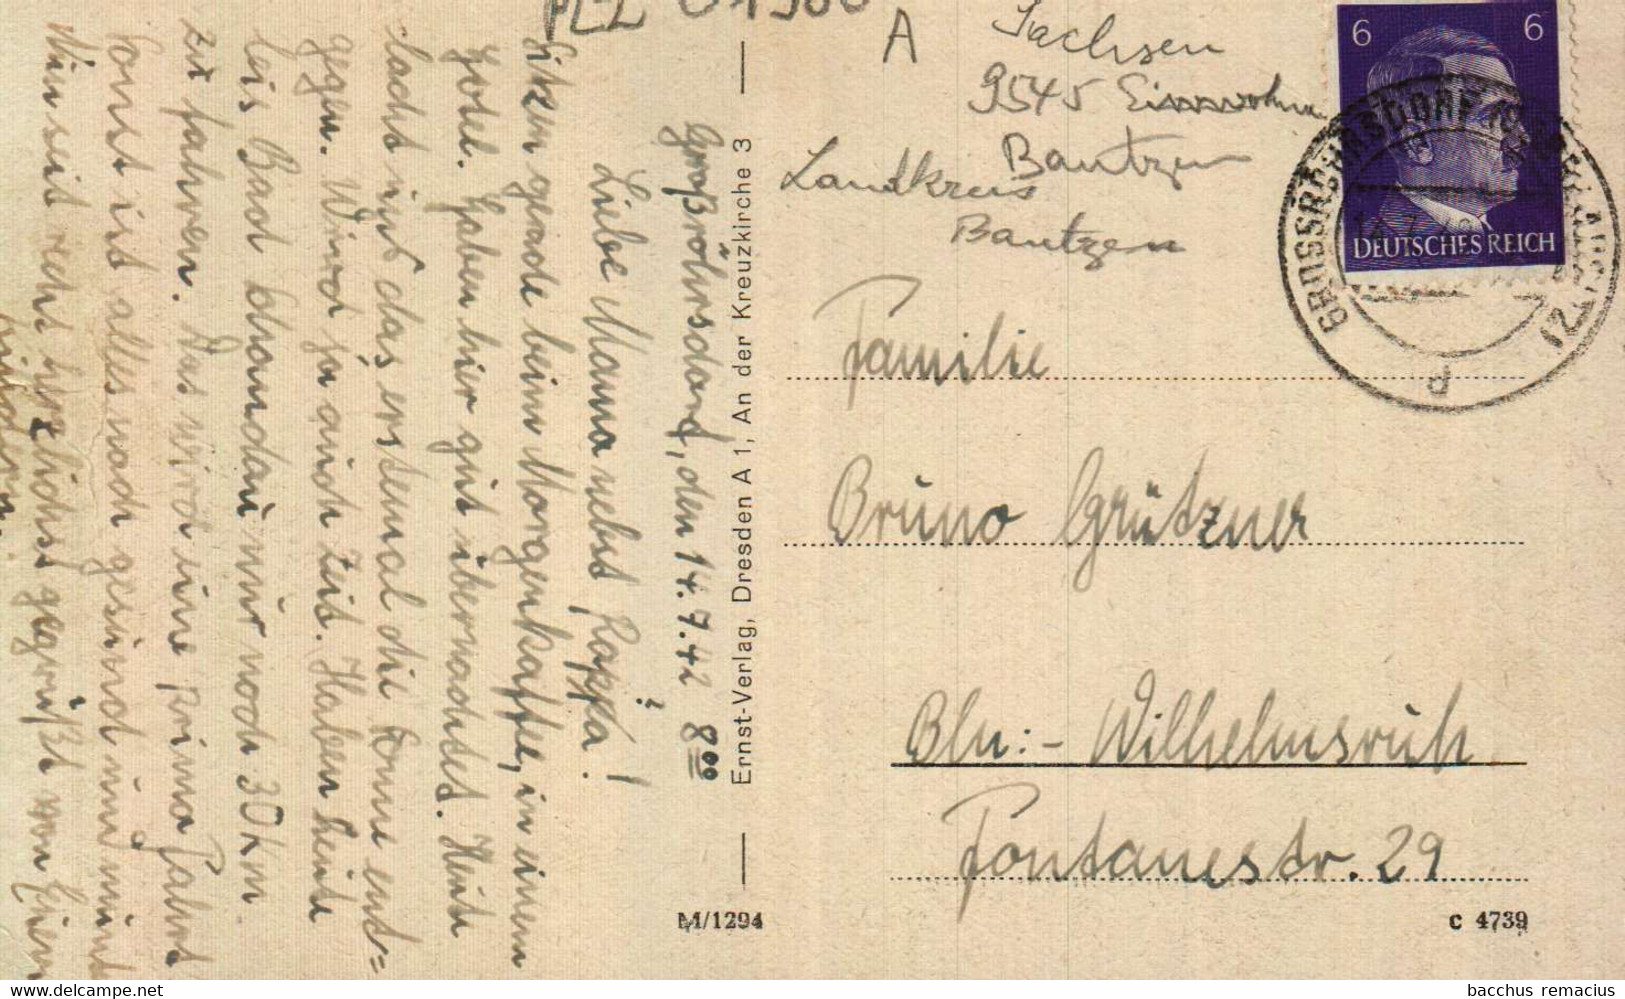 PLZ 01900
A
Sachsen
9545
Bautzen
Landkreis
Bautzen
6 6
DEUTSCHES REICH
Großröhrsdorf, den 14.7.42 8⁰⁰
Liebe Mama nebst Pappa!
Sitzen gerade beim Morgenkaffee, in einem
Hotel. Haben hier gut übernachtet. Heute
lacht uns das erstemal die Sonne ent=
gegen. Wird ja auch Zeit. Haben heute
bis Bad Schandau nur noch 30 Km.
zu fahren. Das wird eine prima Fahrt
Sonst ist alles noch gesund und munter
Nun seit recht herzlichst gegrüßt von Euren
Kindern.
Ernst-Verlag, Dresden A 1, An der Kreuzkirche 3
M/1294
Familie
Bruno Grützner
Bln:- Wilhelmsruh
Fontanestr. 29
c 4739
bacchus remacius